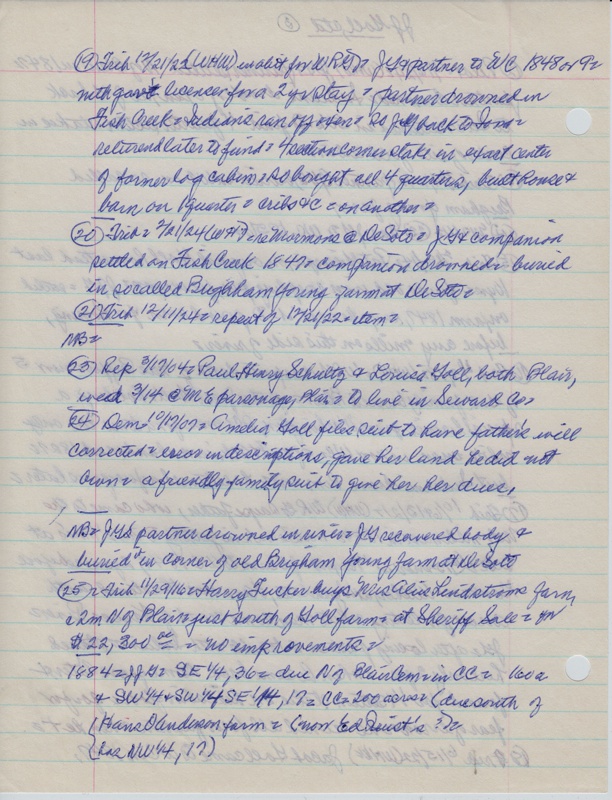 (19) Trib 12/21/22 (WHW) in obit for WRG = JG + partner to WC 1848 or 9 =
with gov't license for a 2 yr stay = partner drowned in
Fish Creek = Indians ran off oxen = so back to Iowa =
returned later to find = 4 section corner stake in exact center
of former log cabin = so bought all 4 quarters, built house +
barn on 1 quarter = cribs &c = on another =
(20) Trib = 2/21/24 (WH) = re Mormons @ DeSoto = JG + companion
settled on Fish Creek 1847 = companion drowned = buried
in so called Brigham Young farm at DeSoto =
(21) Trib 12/11/24 = repeat of 12/21/22 = item =
NB =
(23) Rep 3/17/04 = Paul Henry Schultz + Louisa Goll, both Blair,
wed 3/14 @ ME parsonage, Blair = to live in Seward Co =
(24) Dem 10/17/07 = Amelia Goll files suit to have father's will
corrected = error in descriptions, gave her land he did not
own = a friendly family suit to give her her dues,
NB = JG's partner drowned in river = JG recovered body +
buried it in corner of old Brigham Young farm at DeSoto
(25) = Trib 11/29/16 = Harry Tucker buys Mrs Alice Lindstroms farm,
2 m N of Blair = just south of Goll farm = at Sheriff Sale =
$22,300 00 = no improvements =
1884 = JG = SE 1/4, 36 = due N of Blair Cem = in CC = 160 a
+ SW 1/4 + SW 1/4 SE 1/4, 17 = CC = 200 acres = (due south of
Hans Anderson farm = (now Ed Quist's ?) =
(has NW 1/4, 17)